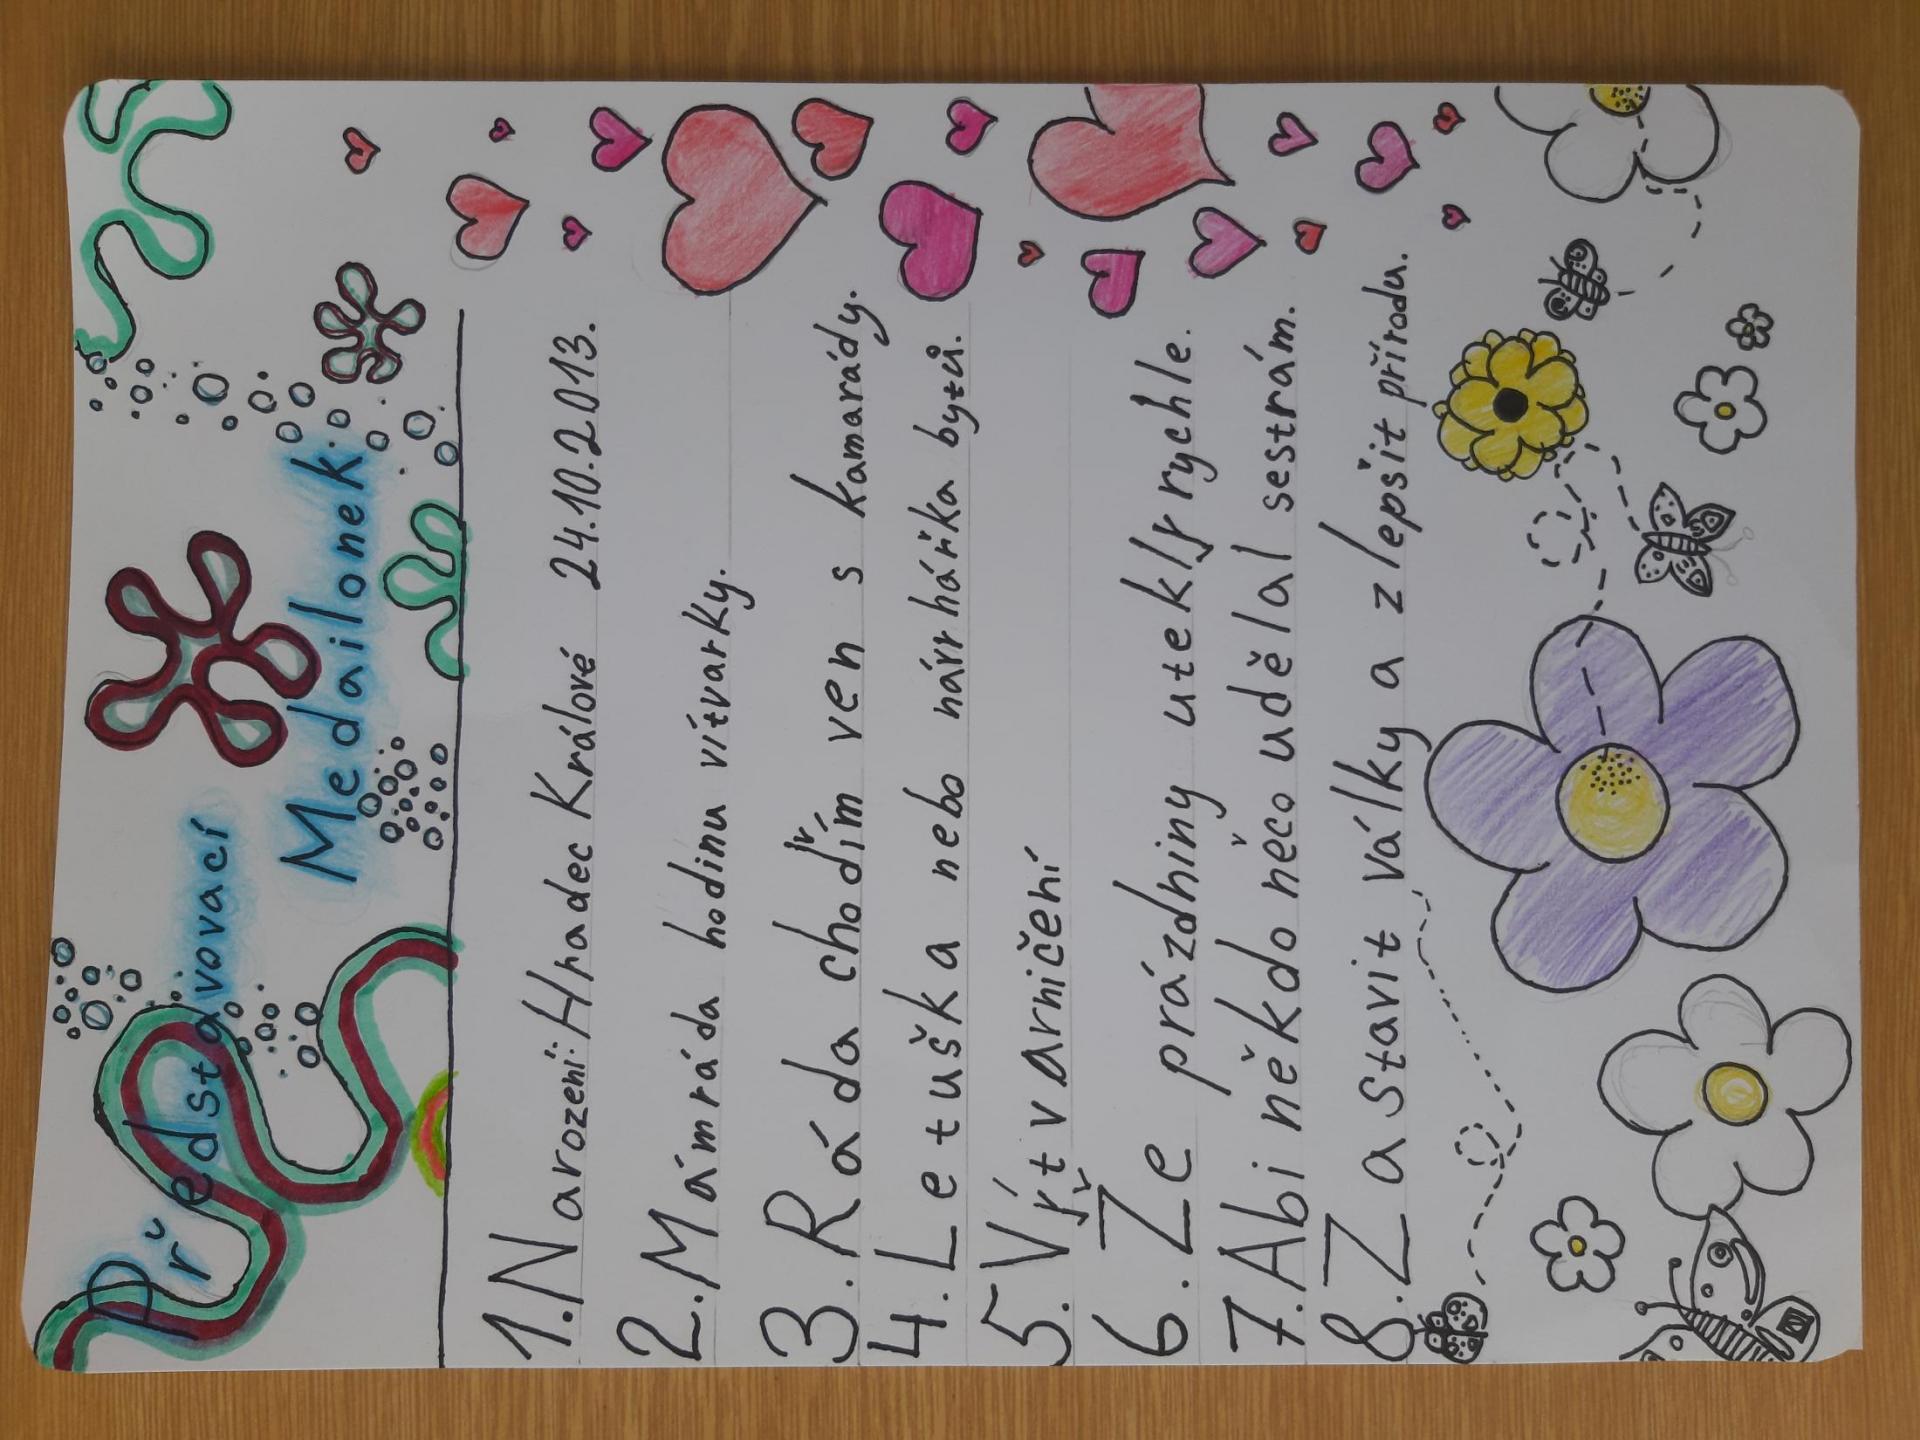 Představovací
Medailonek.
1. Narození: Hradec Králové 24.10.2013.
2. Mám ráda hodinu vítvarky.
3. Ráda chodím ven s kamarády.
4. Letuška nebo návrhářka bytů.
5. Výtvarničení
6. Že prázdniny utekly rychle.
7. Abi někdo něco udělal sestrám.
8. Zastavit války a zlepšit přírodu.